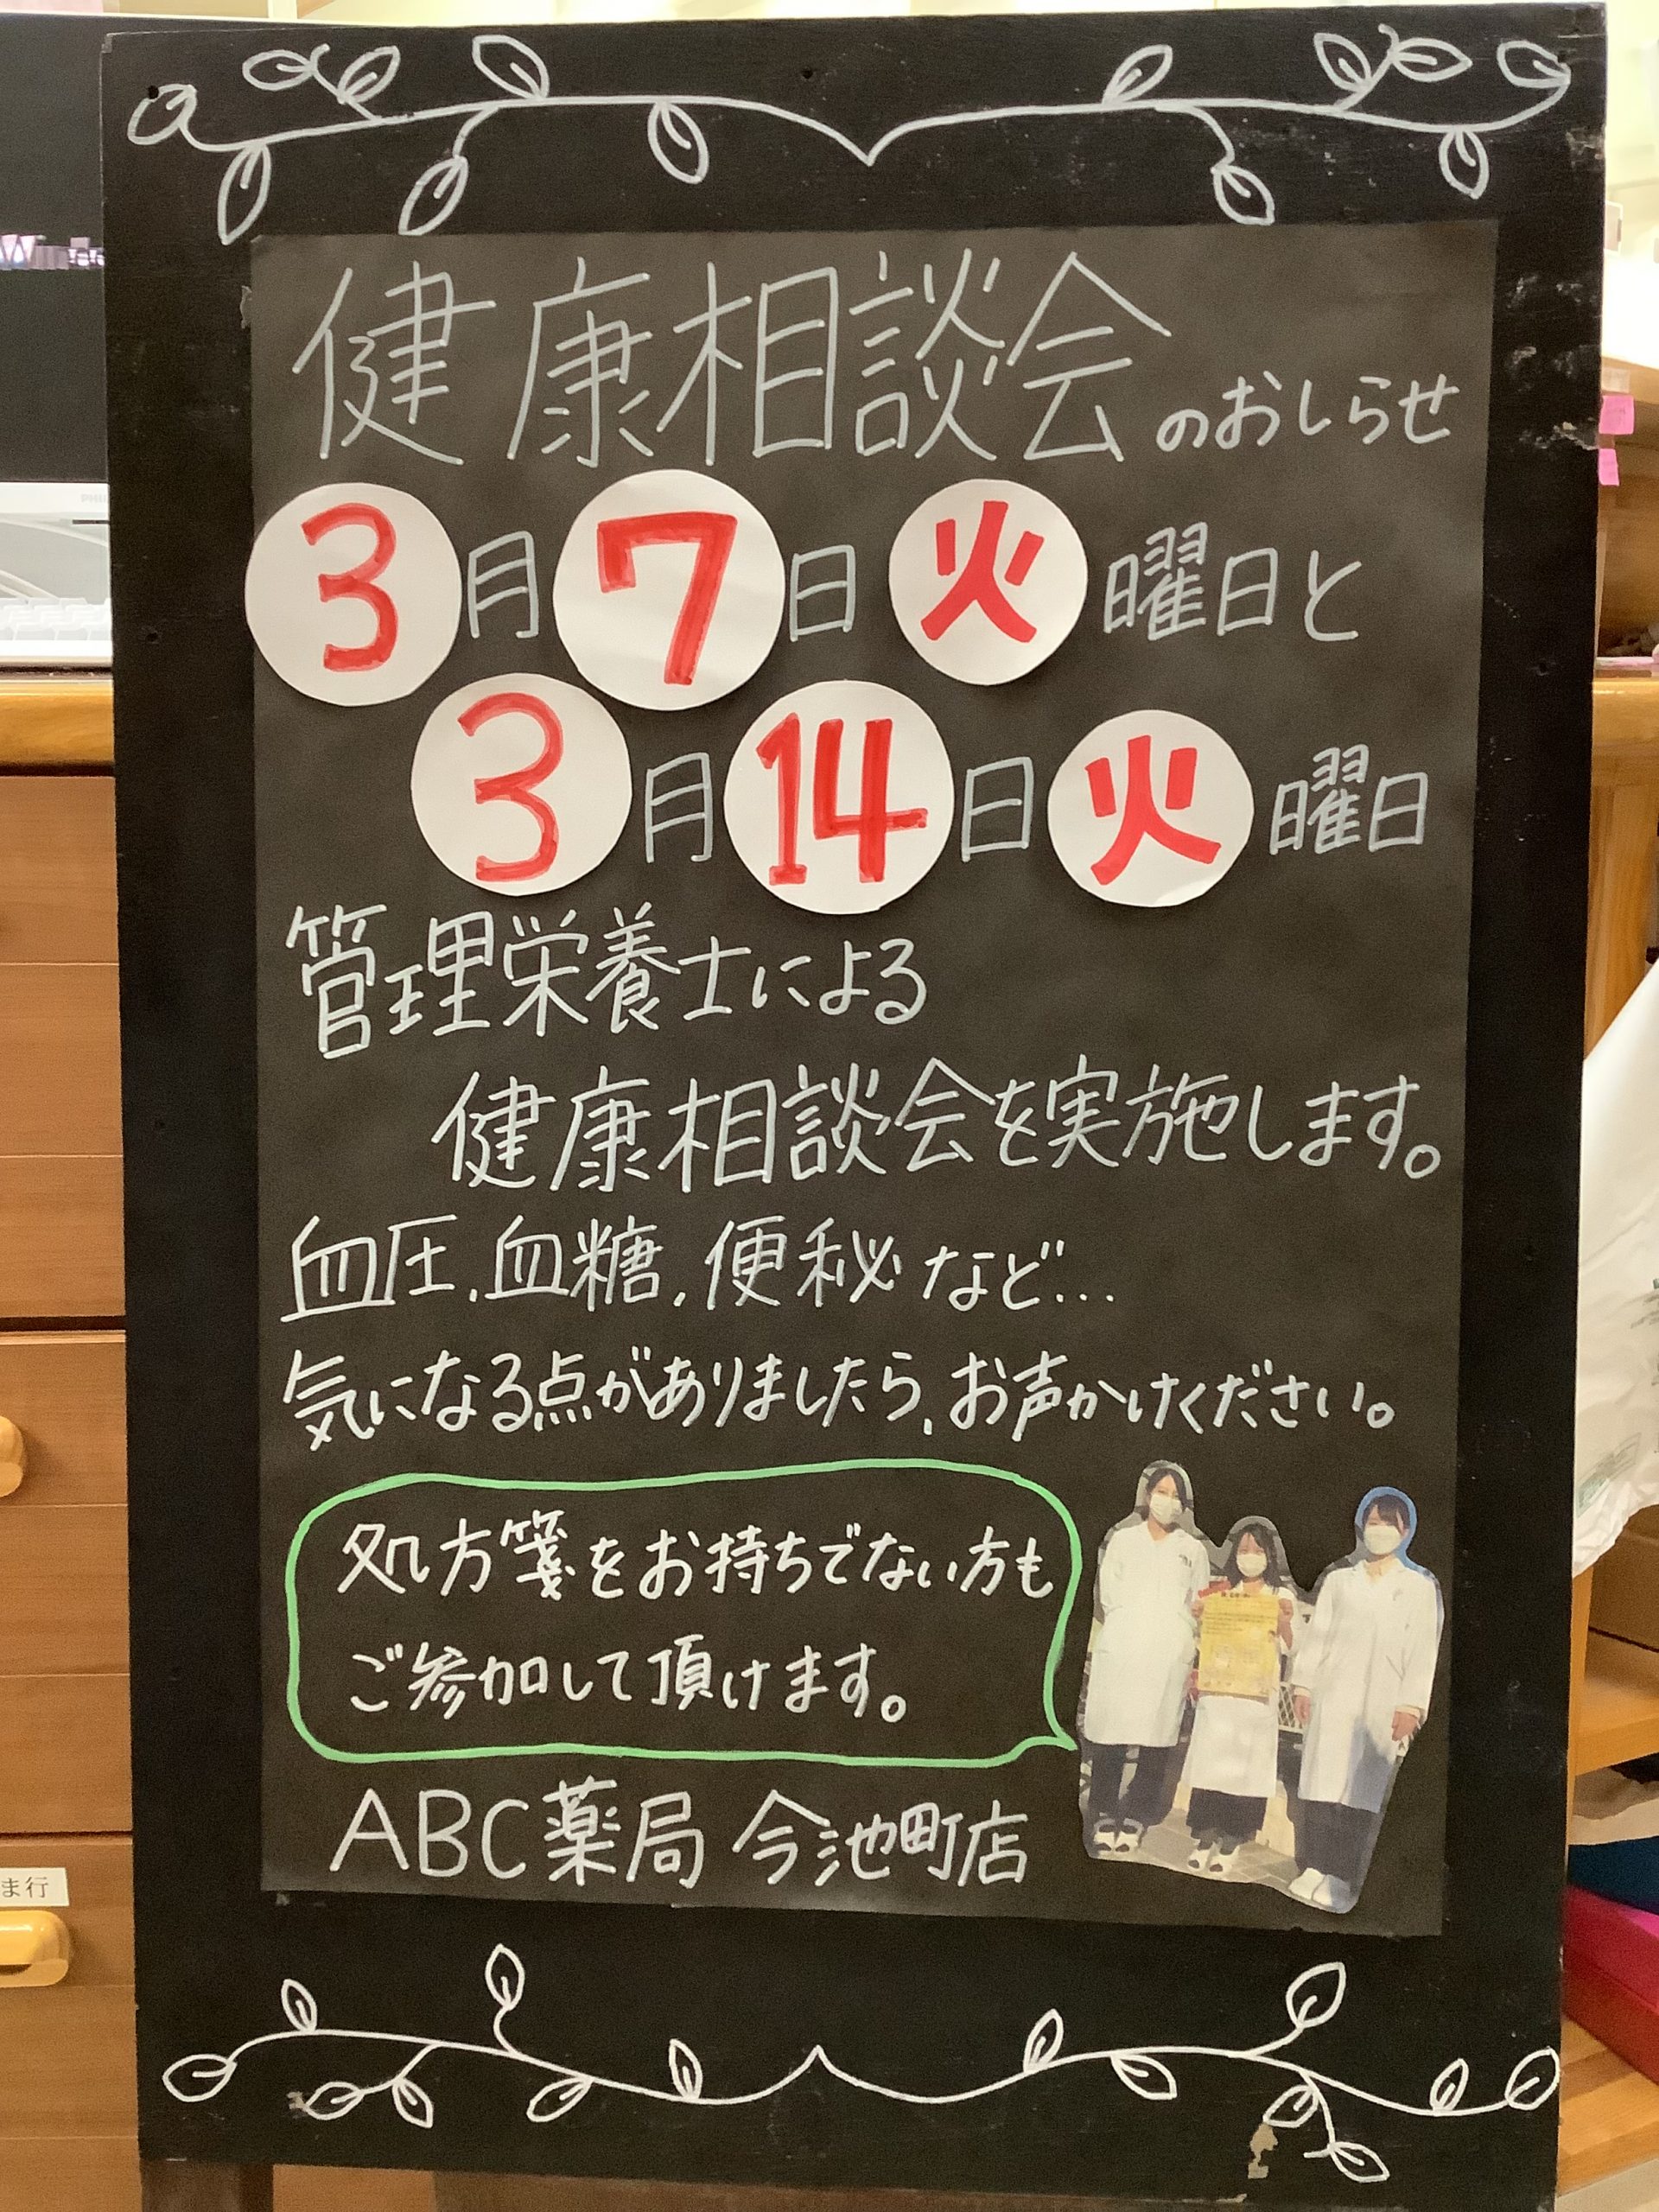 健康相談会のおしらせ
3月7日 火曜日と
3月14日 火曜日
管理栄養士による
健康相談会を実施します。
血圧、血糖、便秘など…
気になる点がありましたら、お声かけください。
処方箋をお持ちでない方も
ご参加して頂けます。
ABC薬局 今池町店
ま行